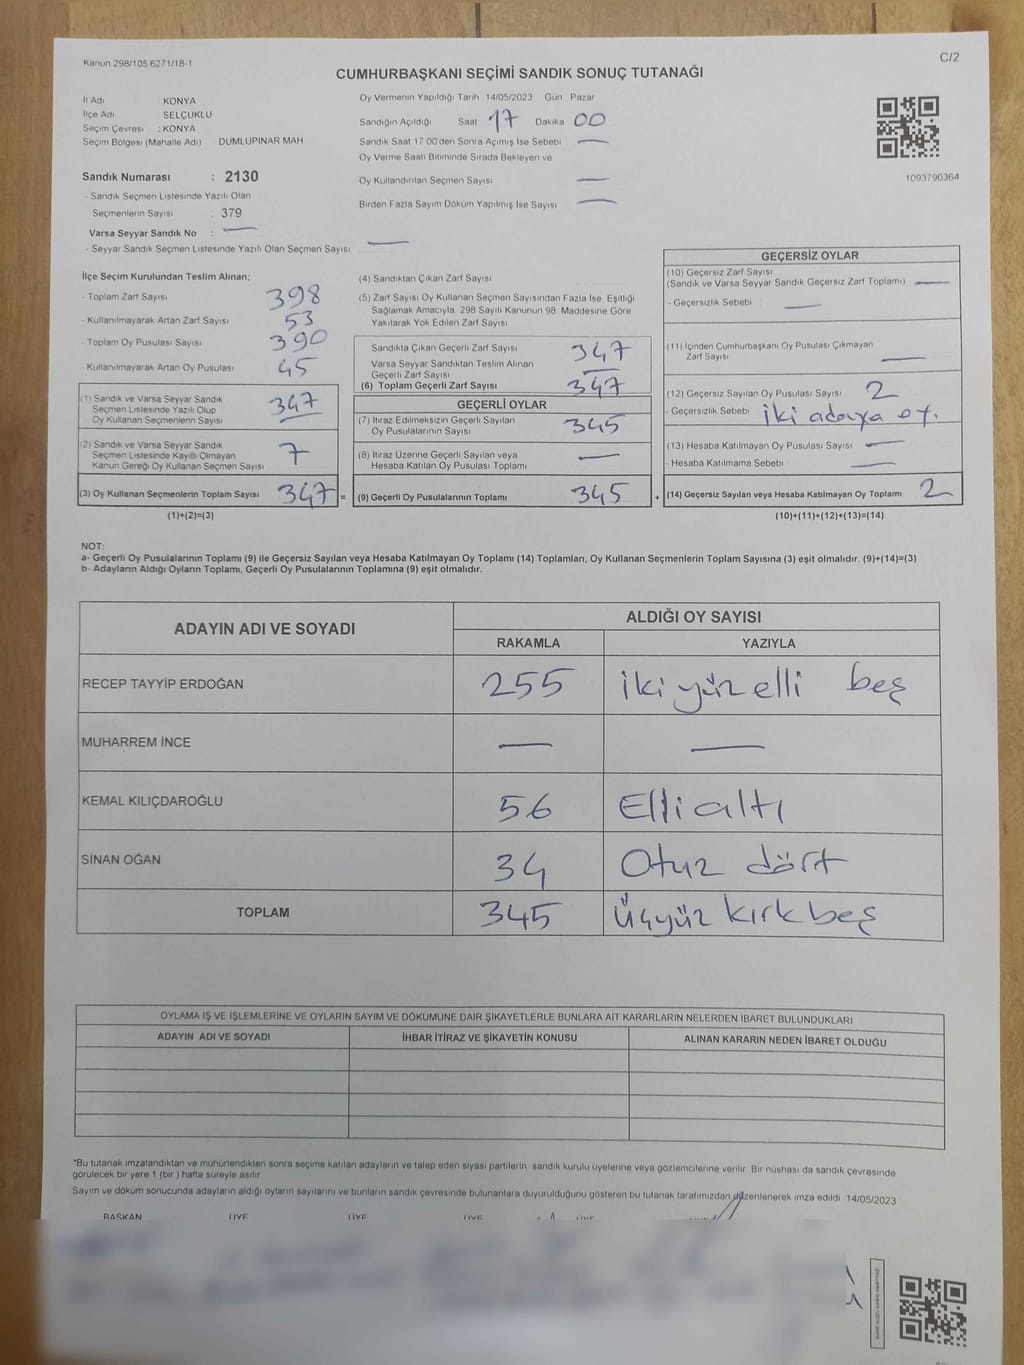 Kanun 298/105.6271/18-1
C/2
CUMHURBAŞKANI SEÇİMİ SANDIK SONUÇ TUTANAĞI
İl Adı KONYA
İlçe Adı SELÇUKLU
Seçim Çevresi : KONYA
Seçim Bölgesi (Mahalle Adı) DUMLUPINAR MAH
Sandık Numarası : 2130
- Sandık Seçmen Listesinde Yazılı Olan
Seçmenlerin Sayısı : 379
Varsa Seyyar Sandık No : —
- Seyyar Sandık Seçmen Listesinde Yazılı Olan Seçmen Sayısı: —
Oy Vermenin Yapıldığı Tarih 14/05/2023 Gün Pazar
Sandığın Açıldığı Saat 17 Dakika 00
Sandık Saat 17.00'den Sonra Açımış İse Sebebi —
Oy Verme Saati Bitiminde Sırada Bekleyen ve
Oy Kullandırılan Seçmen Sayısı —
Birden Fazla Sayım Döküm Yapılmış İse Sayısı —
1093790364
İlçe Seçim Kurulundan Teslim Alınan;
- Toplam Zarf Sayısı 398
- Kullanılmayarak Artan Zarf Sayısı 53
- Toplam Oy Pusulası Sayısı 390
- Kullanılmayarak Artan Oy Pusulası 45
(1) Sandık ve Varsa Seyyar Sandık
Seçmen Listesinde Yazılı Olup
Oy Kullanan Seçmenlerin Sayısı 347
(2) Sandık ve Varsa Seyyar Sandık
Seçmen Listesinde Kayıtlı Olmayan
Kanun Gereği Oy Kullanan Seçmen Sayısı 7
(3) Oy Kullanan Seçmenlerin Toplam Sayısı 347 =
(1)+(2)=(3)
(4) Sandıktan Çıkan Zarf Sayısı
(5) Zarf Sayısı Oy Kullanan Seçmen Sayısından Fazla İse, Eşitliği
Sağlamak Amacıyla, 298 Sayılı Kanunun 98. Maddesine Göre
Yakılarak Yok Edilen Zarf Sayısı
Sandıkta Çıkan Geçerli Zarf Sayısı 347
Varsa Seyyar Sandıktan Teslim Alınan
Geçerli Zarf Sayısı —
(6) Toplam Geçerli Zarf Sayısı 347
GEÇERLİ OYLAR
(7) İtiraz Edilmeksizin Geçerli Sayılan
Oy Pusulalarının Sayısı 345
(8) İtiraz Üzerine Geçerli Sayılan veya
Hesaba Katılan Oy Pusulası Toplamı —
(9) Geçerli Oy Pusulalarının Toplamı 345 +
GEÇERSİZ OYLAR
(10) Geçersiz Zarf Sayısı
(Sandık ve Varsa Seyyar Sandık Geçersiz Zarf Toplamı) —
- Geçersizlik Sebebi —
(11) İçinden Cumhurbaşkanı Oy Pusulası Çıkmayan
Zarf Sayısı —
(12) Geçersiz Sayılan Oy Pusulası Sayısı 2
- Geçersizlik Sebebi iki adaya oy.
(13) Hesaba Katılmayan Oy Pusulası Sayısı —
- Hesaba Katılmama Sebebi —
(14) Geçersiz Sayılan veya Hesaba Katılmayan Oy Toplamı 2
(10)+(11)+(12)+(13)=(14)
NOT:
a- Geçerli Oy Pusulalarının Toplamı (9) ile Geçersiz Sayılan veya Hesaba Katılmayan Oy Toplamı (14) Toplamları, Oy Kullanan Seçmenlerin Toplam Sayısına (3) eşit olmalıdır. (9)+(14)=(3)
b- Adayların Aldığı Oyların Toplamı, Geçerli Oy Pusulalarının Toplamına (9) eşit olmalıdır.
ADAYIN ADI VE SOYADI
ALDIĞI OY SAYISI
RAKAMLA YAZIYLA
RECEP TAYYİP ERDOĞAN 255 iki yüz elli beş
MUHARREM İNCE — —
KEMAL KILIÇDAROĞLU 56 Elli altı
SİNAN OĞAN 34 Otuz dört
TOPLAM 345 Üçyüz kırk beş
OYLAMA İŞ VE İŞLEMLERİNE VE OYLARIN SAYIM VE DÖKÜMÜNE DAİR ŞİKAYETLERLE BUNLARA AİT KARARLARIN NELERDEN İBARET BULUNDUKLARI
ADAYIN ADI VE SOYADI İHBAR İTİRAZ VE ŞİKAYETİN KONUSU ALINAN KARARIN NEDEN İBARET OLDUĞU
*Bu tutanak imzalandıktan ve mühürlendikten sonra seçime katılan adayların ve talep eden siyasi partilerin sandık kurulu üyelerine veya gözlemcilerine verilir. Bir nüshası da sandık çevresinde
görülecek bir yere 1 (bir) hafta süreyle asılır.
Sayım ve döküm sonucunda adayların aldığı oyların sayılarını ve bunların sandık çevresinde bulunanlara duyurulduğunu gösteren bu tutanak tarafımızdan düzenlenerek imza edildi 14/05/2023
BAŞKAN ÜYE ÜYE ÜYE ÜYE